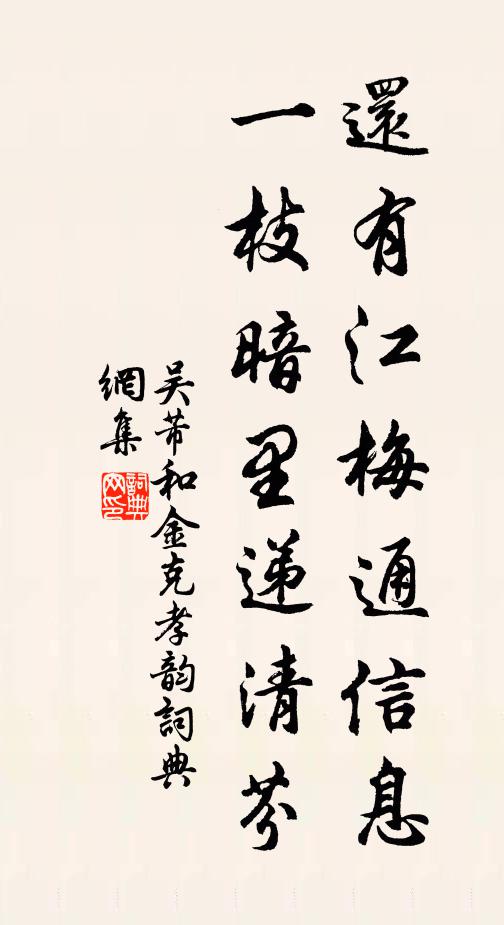 還有江梅通信息
一枝暗里递清芬
吴芾和金克孝韵詞典
網集
詞典
网印